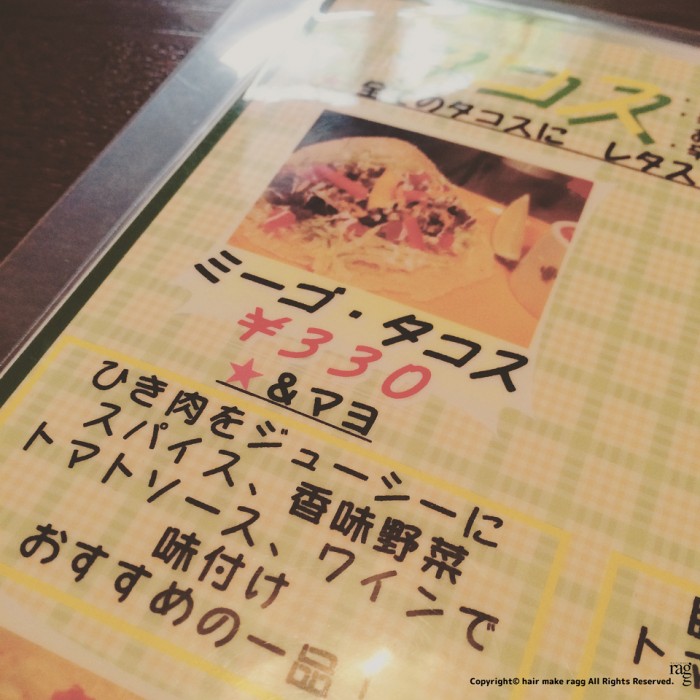 タコス
全てのタコスに レタス
ミーゴ・タコス
¥330
★&マヨ
ひき肉をジューシーに
スパイス、香味野菜
トマトソース、ワインで
味付け
おすすめの一品!
ト
ragg
Copyright© hair make ragg All Rights Reserved.